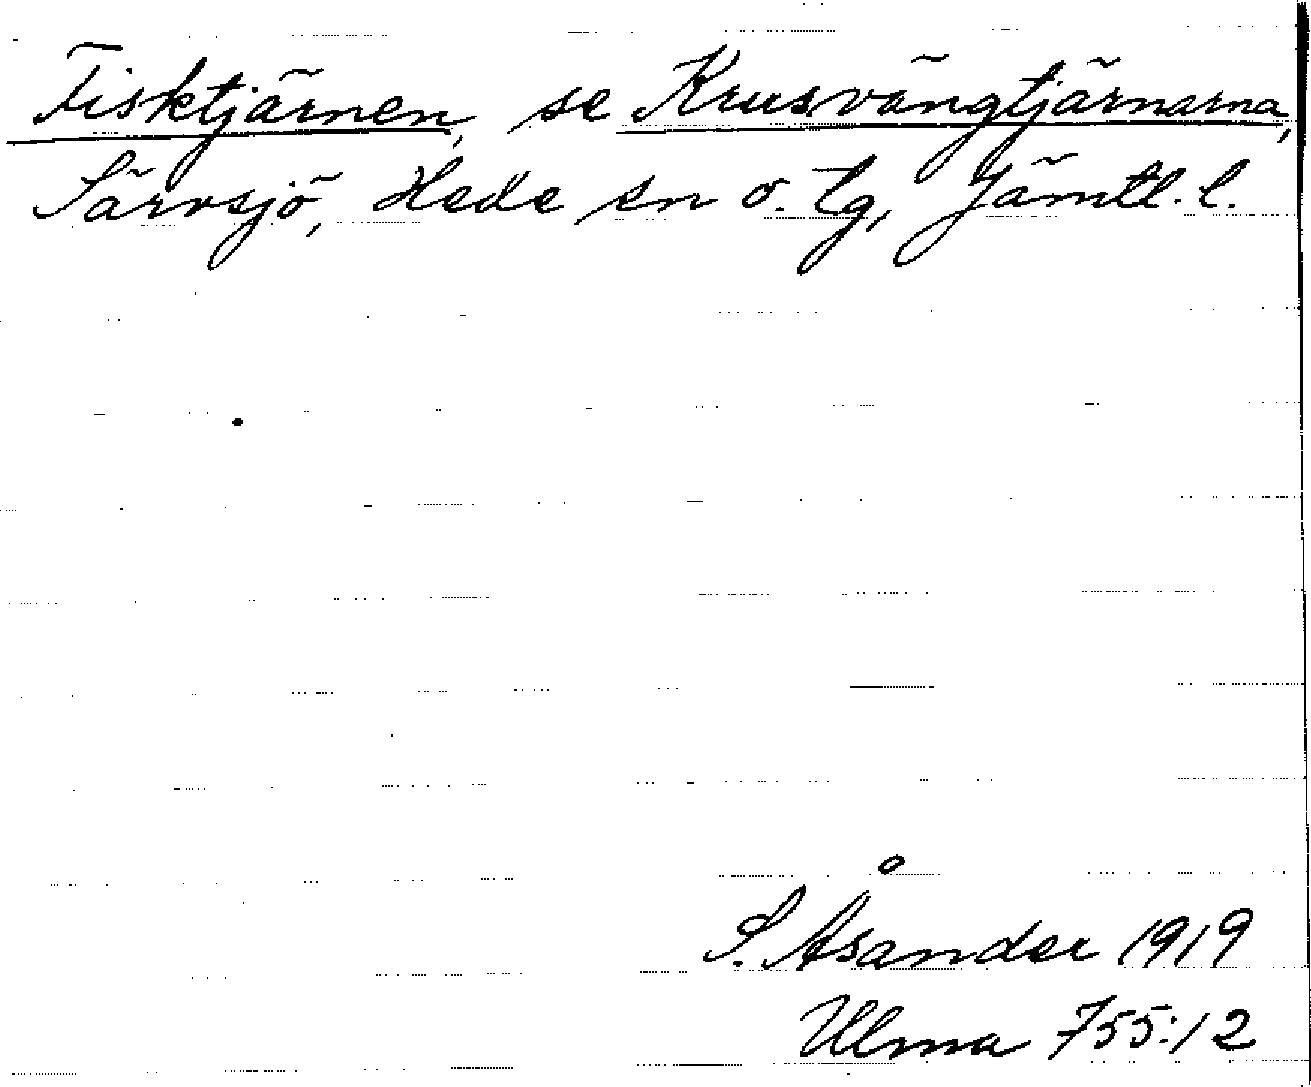 Fisktjärnen, se Krusvängtjärnarna,
Särvsjö, Hede sn o. tg, Jämtl. l.
S. Åsander 1919
Ulma 755:12